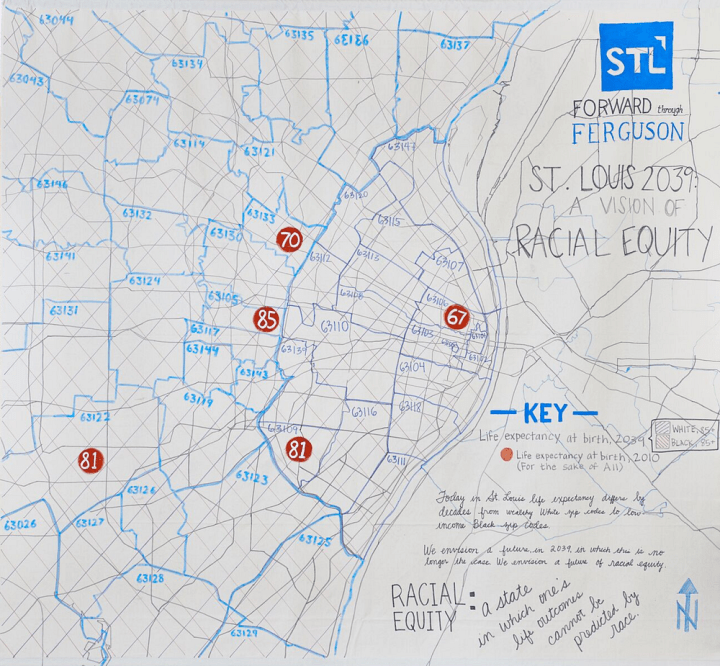 63044
63135
63136
63137
63134
63043
63074
63114
63121
63147
63146
63120
63132
63133
63115
63130
70
63141
63112
63113
63107
63124
63105
63108
63106
63131
85
67
63117
63110
63103
63144
63139
63102
63104
63143
63119
63116
63118
63122
63109
81
81
63111
63123
63126
63026
63127
63125
63128
63129
STL
FORWARD through
FERGUSON
ST. LOUIS 2039:
A VISION OF
RACIAL EQUITY
KEY
Life expectancy at birth, 2039
WHITE, 85+
BLACK, 85+
Life expectancy at birth, 2010
(For the sake of All)
Today in St. Louis life expectancy differs by
decades from wealthy White zip codes to low-
income Black zip codes.
We envision a future, in 2039, in which this is no
longer the case. We envision a future of racial equity.
RACIAL EQUITY:
a state
in which one's
life outcomes
cannot be
predicted by
race.
N